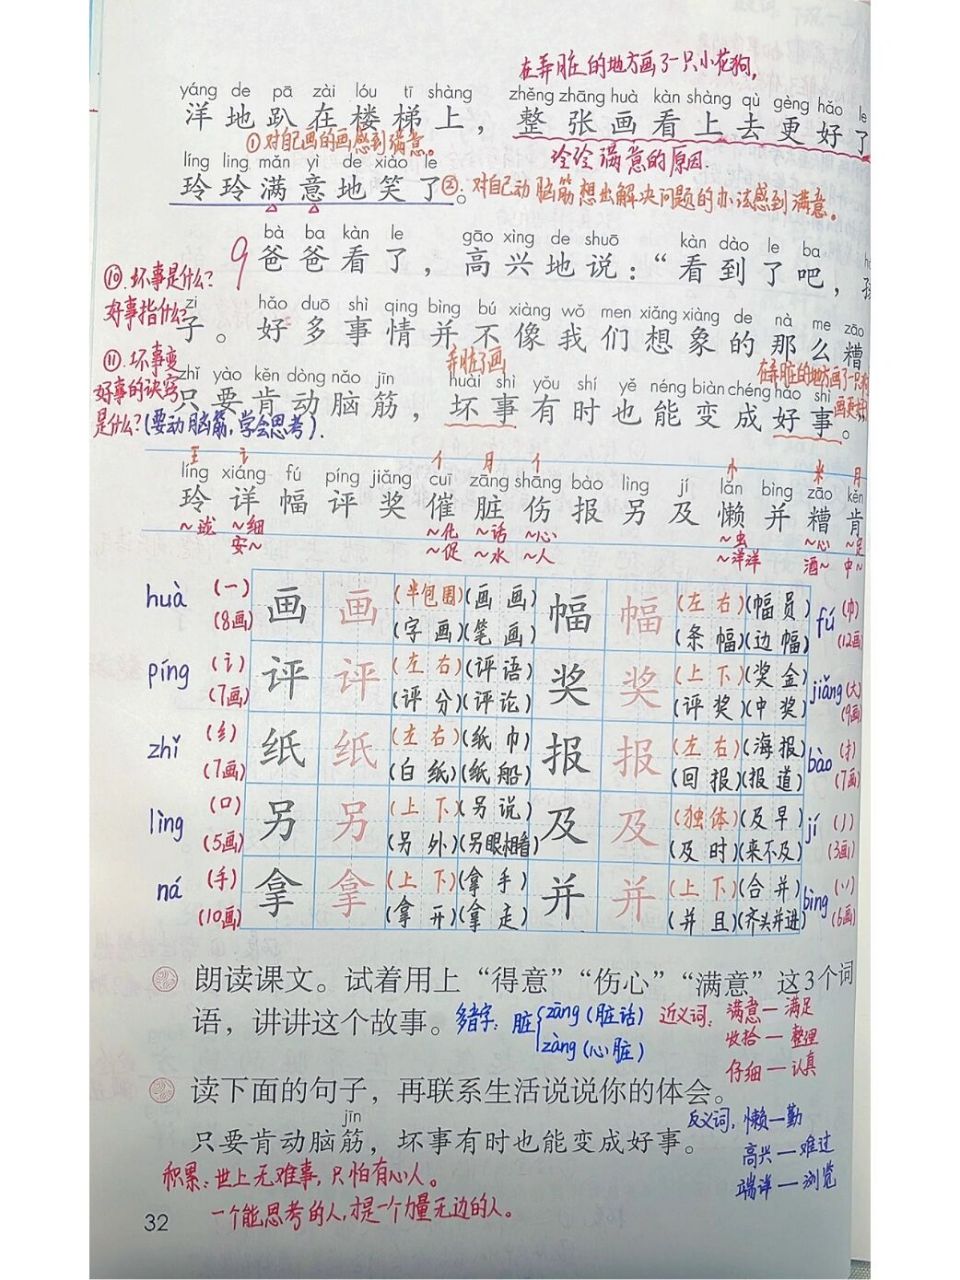 在弄脏的地方画了一只小花狗，
yáng de pā zài lóu tī shàng zhěng zhāng huà kàn shàng qù gèng hǎo le
洋地趴在楼梯上，整张画看上去更好了
①对自己画的画感到满意。
玲玲满意的原因.
líng ling mǎn yì de xiào le
玲玲满意地笑了。
②.对自己动脑筋想出解决问题的办法感到满意。
9
bà ba kàn le gāo xìng de shuō kàn dào le ba
爸爸看了，高兴地说：“看到了吧，孩
⑩.坏事是什么?
好事指什么?
zi hǎo duō shì qing bìng bú xiàng wǒ men xiǎng xiàng de nà me zāo
子。好多事情并不像我们想象的那么糟
⑪.坏事变
好事的诀窍
是什么?(要动脑筋,学会思考).
弄脏了画
在弄脏的地方画了一只
画更好
zhǐ yào kěn dòng nǎo jīn huài shì yǒu shí yě néng biàn chéng hǎo shì
只要肯动脑筋，坏事有时也能变成好事。
王 讠 亻 月 亻 忄 米 月
líng xiáng fú píng jiǎng cuī zāng shāng bào lìng jí lǎn bìng zāo kěn
玲详幅评奖催脏伤报另及懒并糟肯
~珑 ~细 ~化 ~话 ~心 ~虫 ~心 ~定
安~ ~促 ~水 ~人 ~洋洋 酒~ 中~
huà (一) 画 画 (半包围)(画画) 幅 幅 (左右)(幅员) fú (巾)
(8画) (字画)(笔画) (条幅)(边幅) (12画)
píng (讠) 评 评 (左右)(评语) 奖 奖 (上下)(奖金) jiǎng (大)
(7画) (评分)(评论) (评奖)(中奖) (9画)
zhǐ (纟) 纸 纸 (左右)(纸巾) 报 报 (左右)(海报) bào (扌)
(7画) (白纸)(纸船) (回报)(报道) (7画)
lìng (口) 另 另 (上下)(另说) 及 及 (独体)(及早) jí (丿)
(5画) (另外)(另眼相看) (及时)(来不及) (3画)
ná (手) 拿 拿 (上下)(拿手) 并 并 (上下)(合并) bìng (丷)
(10画) (拿开)(拿走) (并且)(齐头并进) (6画)
朗读课文。试着用上“得意”“伤心”“满意”这3个词
语，讲讲这个故事。
多音字: 脏 zāng (脏话)
zàng (心脏)
近义词: 满意—满足
收拾—整理
仔细—认真
读下面的句子，再联系生活说说你的体会。
jīn
只要肯动脑筋，坏事有时也能变成好事。
反义词, 懒—勤
高兴—难过
端详—浏览
积累:世上无难事,只怕有心人。
一个能思考的人,才是一个力量无边的人。
32